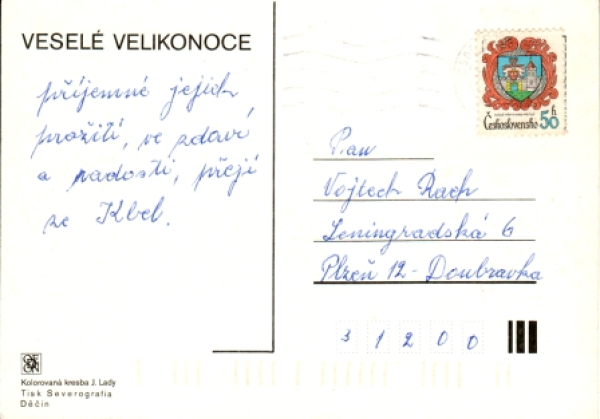 VESELÉ VELIKONOCE
příjemné jejich
prožití, ve zdraví
a radosti, přejí
ze Kbel.
Kolorovaná kresba J. Lady
Tisk Severografia
Děčín
Československo 50 h
Pan
Vojtech Rach
Leningradská 6
Plzeň 12 - Doubravka
3 1 2 0 0